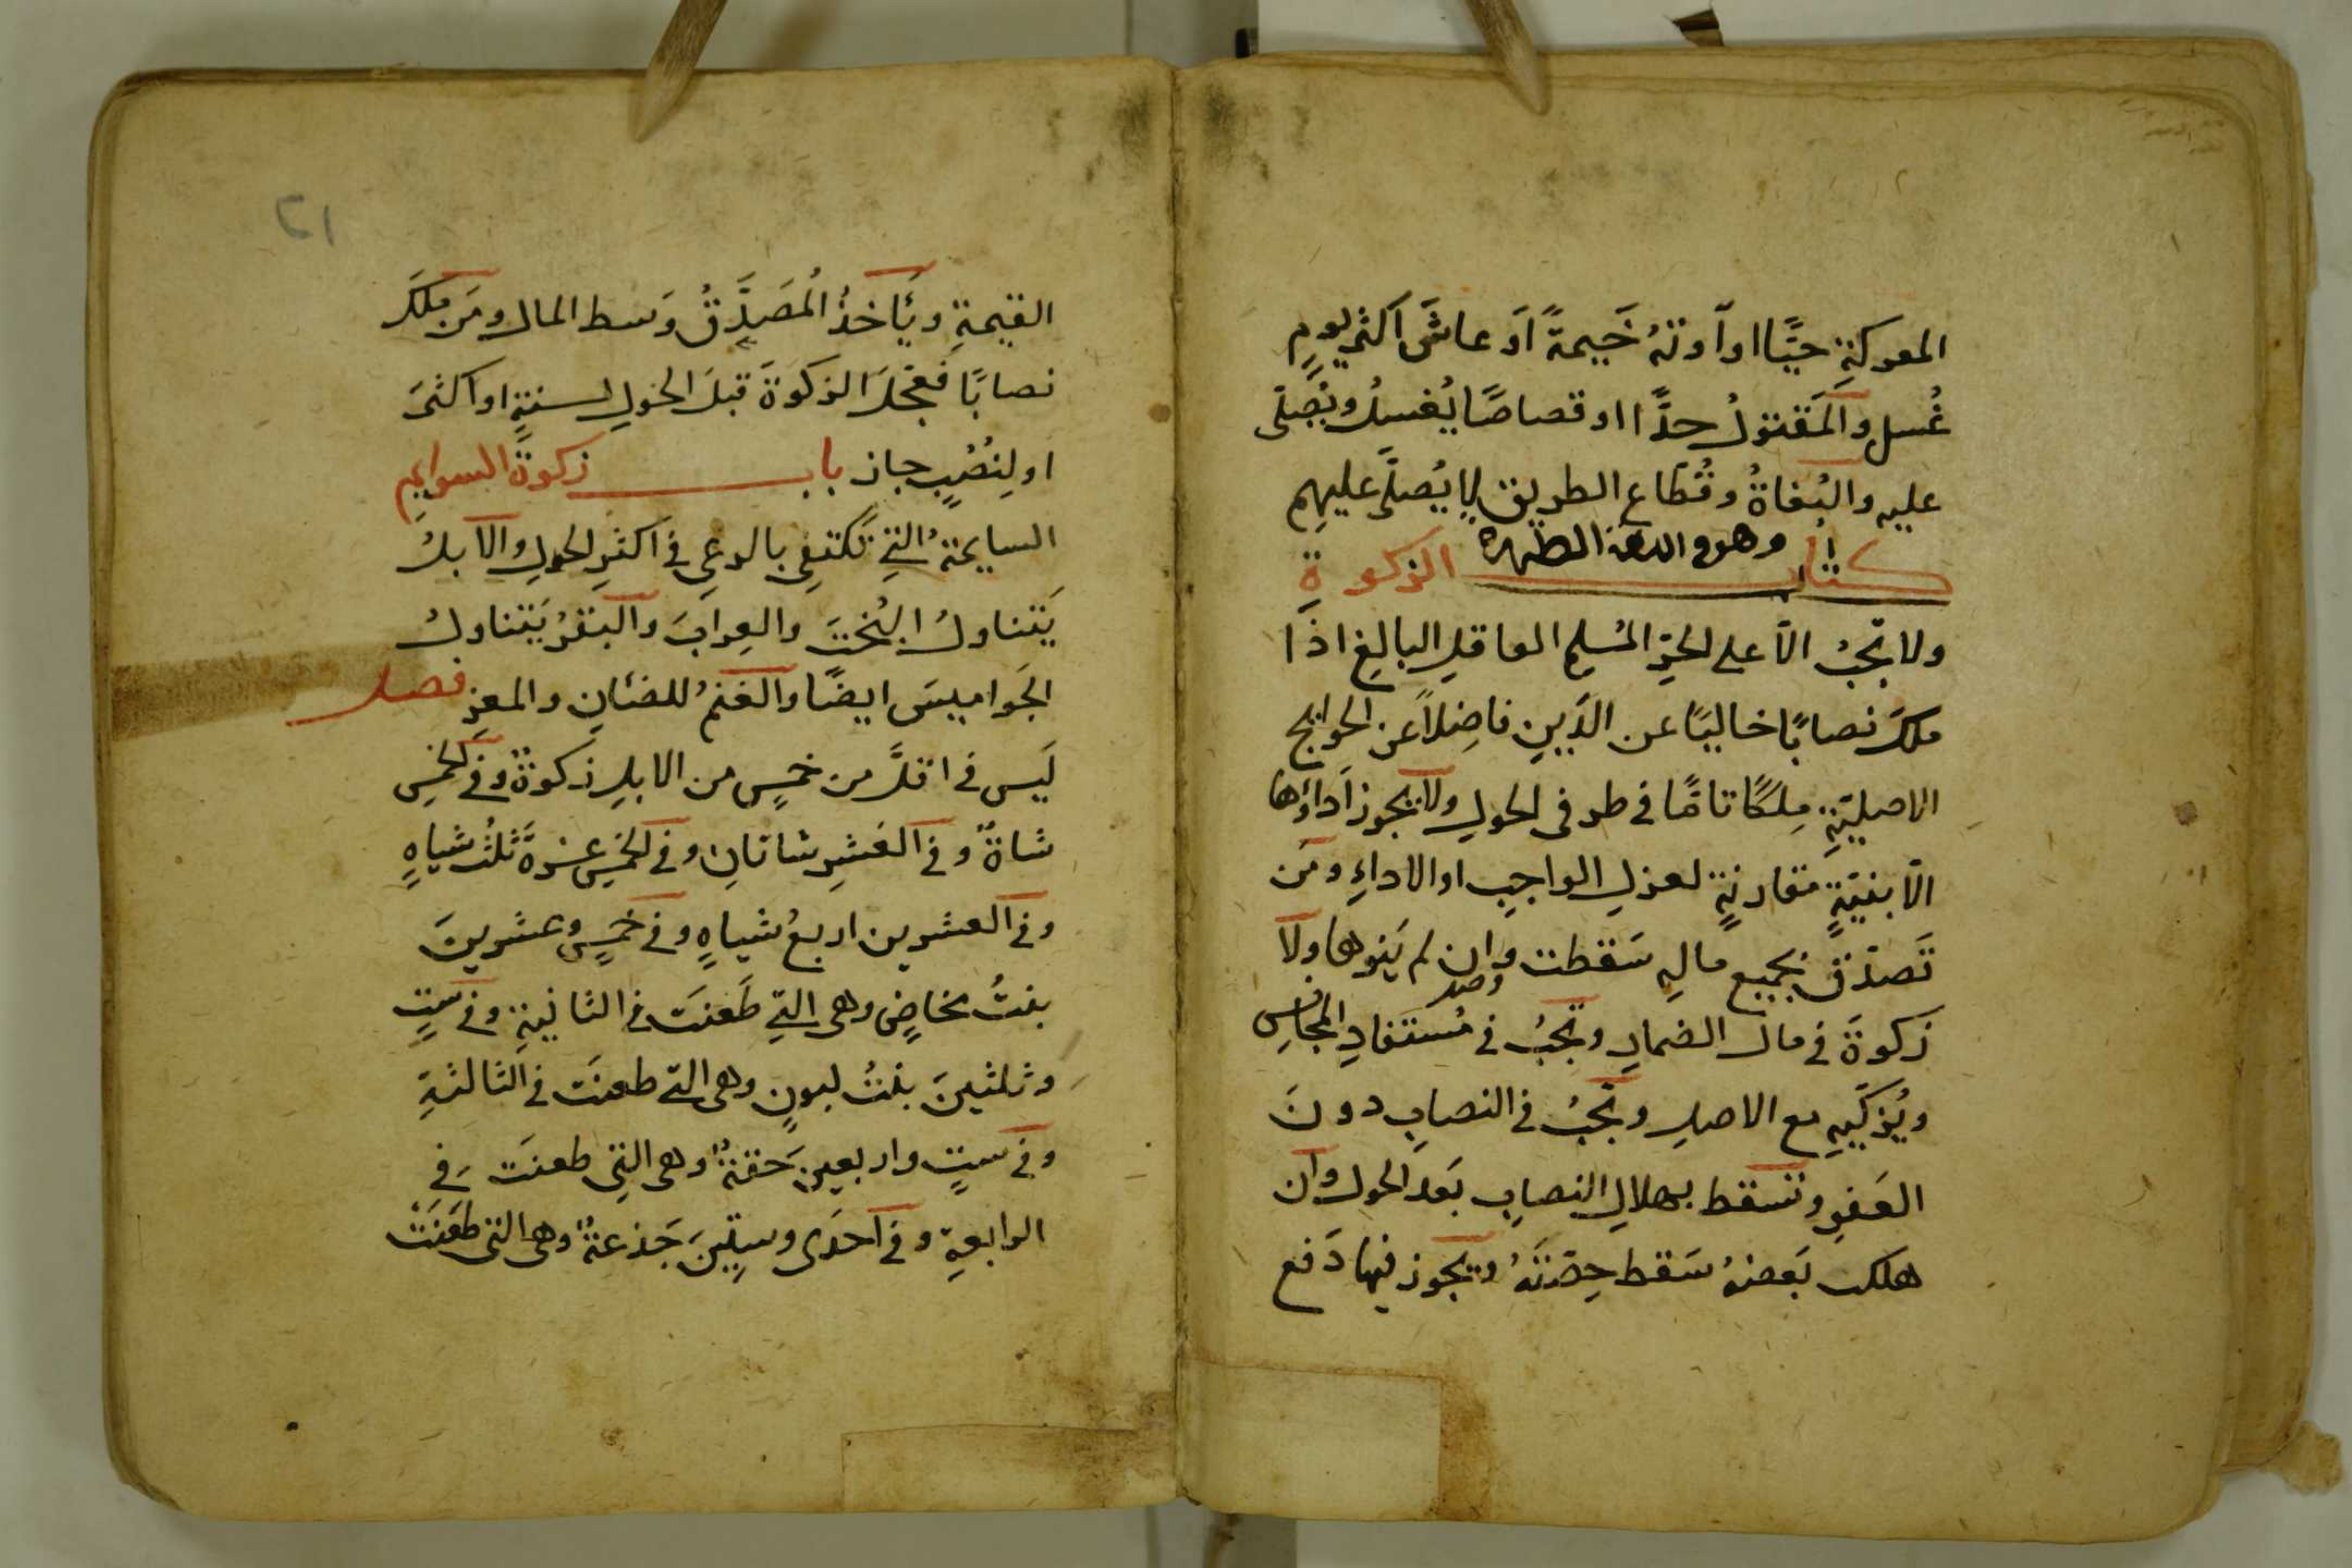 المعركةِ حيًّا او آوتهُ خَيمةً اَو عاشَ اكثر يومٍ
غُسل والمَقتولُ حدًّا او قصاصًا يُغسلُ ويُصلّى
عليه والبُغاةُ وقُطّاع الطريق لا يُصلّى عليهم
كتاب الزكوة
وهو اللغة الطهره
ولا تجبُ الّا على الحرِّ المُسلمِ العاقلِ البالِغِ اذا
ملكَ نصابًا خاليًا عن الدَّينِ فاضِلاً عن الحوائج
الاصليّةِ مِلكًا تامًّا فى طرفى الحولِ ولا يجوز اَداؤها
الّا بنيّةٍ مقارنةٍ لعزلِ الواجبِ او الاداءِ ومَن
تَصدّق بجميع مالِهِ سَقطت وان لم يَنوها ولا
زكوةَ في مالِ الضمارِ وتجبُ في مُستفادِ المجانسِ
ويُزكّيهِ مع الاصلِ وتجبُ في النصابِ دونَ
العَفوِ وتسقط بهلاكِ النصابِ بَعد الحول وان
هلك بَعضهُ سَقط حِصّتَهُ ويجوز فيها دَفع
٢١
القيمةِ ويَأخذُ المُصَدِّقُ وَسط المال ومَن ملكَ
نصابًا فَعجّلَ الزكوةَ قبلَ الحولِ لسنةٍ او اكثرَ
او لِنُصُبٍ جاز باب زكوة السوايمِ
السايمةُ التي تَكتفِى بالرعىِ في اكثرِ الحولِ والابلُ
يَتناولُ البُختَ والعِرابَ والبقرُ يَتناولُ
الجَواميسَ ايضًا والغنمُ للضئانِ والمعزِ فصل
لَيس في اقلَّ من خمسٍ من الابلِ زكوةٌ وفي الخمسِ
شاةٌ وفي العَشرِ شاتانِ وفي الخمسَ عشرةَ ثلثُ شياهٍ
وفي العشرين اربعُ شياهٍ وفي خمسٍ وعشرينَ
بنتُ مخاضٍ وهى التي طَعنَت في الثانيةِ وفي ستٍ
وثلثينَ بنتُ لبونٍ وهى التى طعنَت في الثالثةِ
وفي ستٍ واربعين حَقةٌ وهى التِى طعنَت في
الرابعةِ وفي احدَى وستِّينَ جَذعةٌ وهى التى طَعَنَتْ